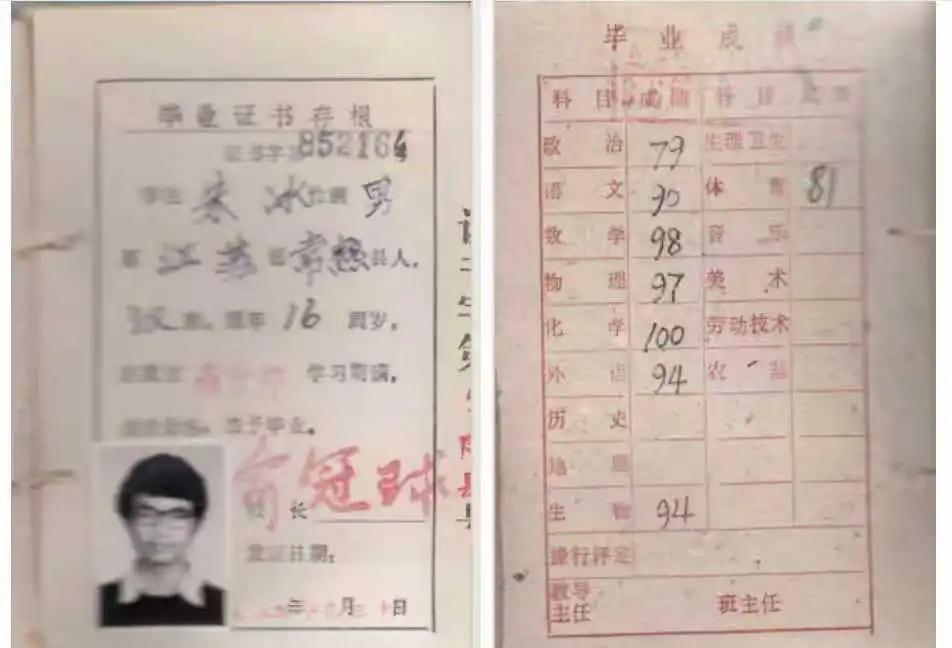 毕业证书存根
证书字第852164
学生 宋冰 性别 男
系 江苏 省 常熟 县人,
汉 族, 现年 16 周岁,
学习期满,
准予毕业。
俞冠球
校 长
发证日期:
年 月 日
毕 业 成 绩
科 目 成绩 科 目 成绩
政 治 79 生理卫生
语 文 90 体 育 81
数 学 98 音 乐
物 理 97 美 术
化 学 100 劳动技术
外 语 94 农 基
历 史
地 理
生 物 94
操行评定
教导主任 班主任